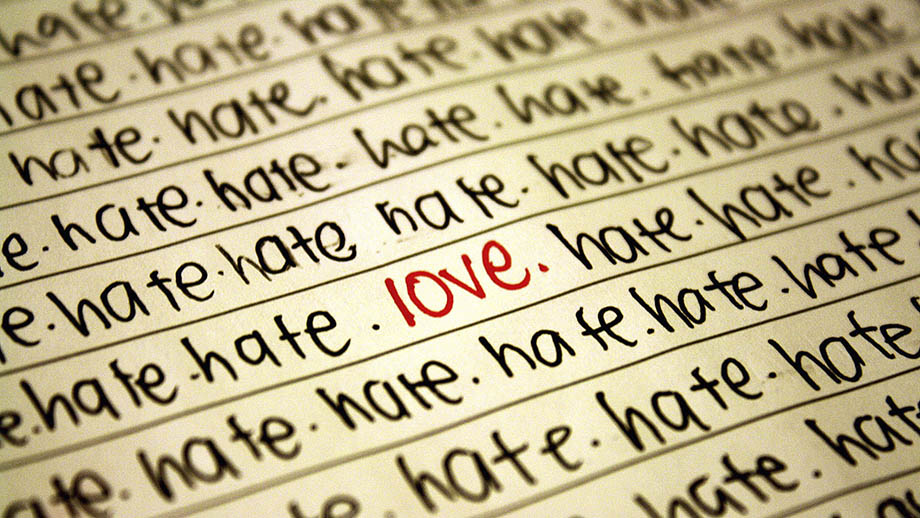 hate.
ate.hate.hate
hate.hate.hate.hate.
e.hate.hate.hate.hate.hate.hate
e.hate.hate hate.hate.hate.ha
e.hate.hate.love.hate.hate.ha
ate.hate.hate.hate.hate.hate
hate.hate.hate
hate.hat